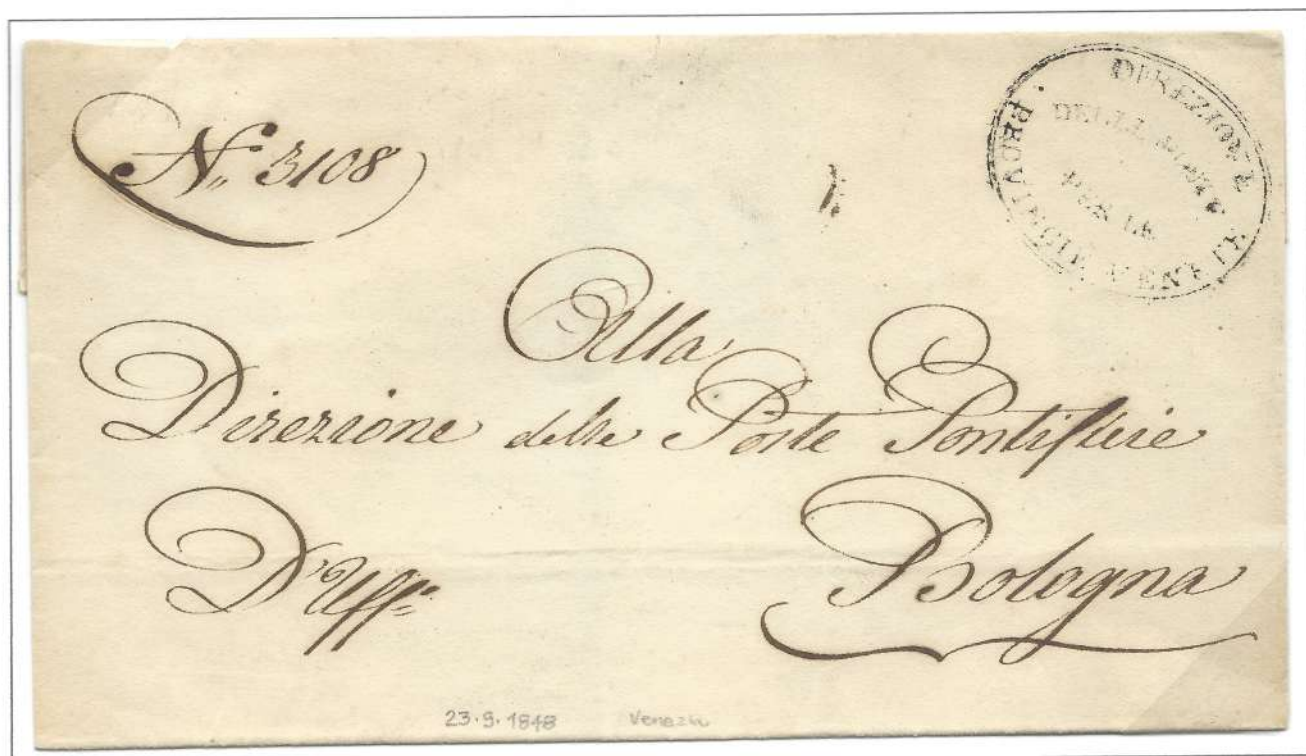 Nº 3108
DIREZIONE
DELLE POSTE
PER LE
PROVINCIE VENETE
Alla
Direzione delle Poste Pontificie
D'Uffº
Bologna
23.9.1848 Venezia